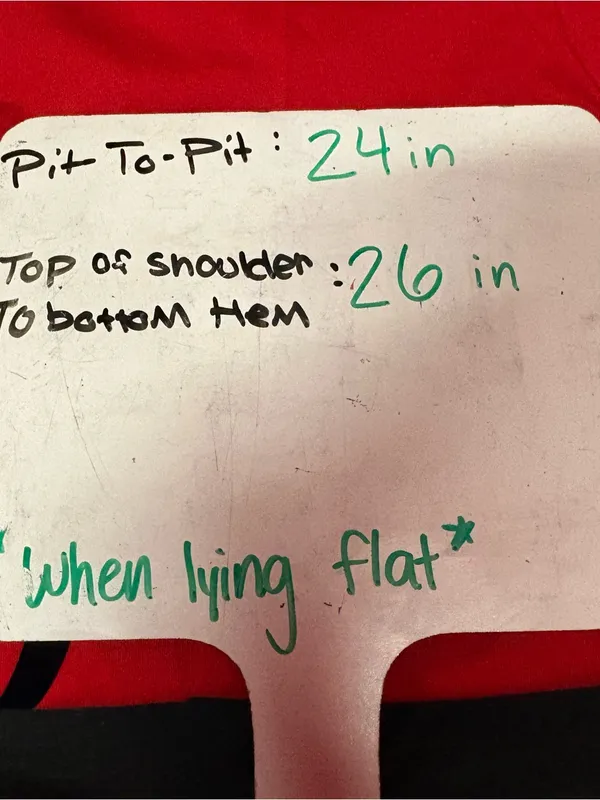 Pit To-Pit: 24 in
Top of shoulder : 26 in
To bottom Hem
*when lying flat*